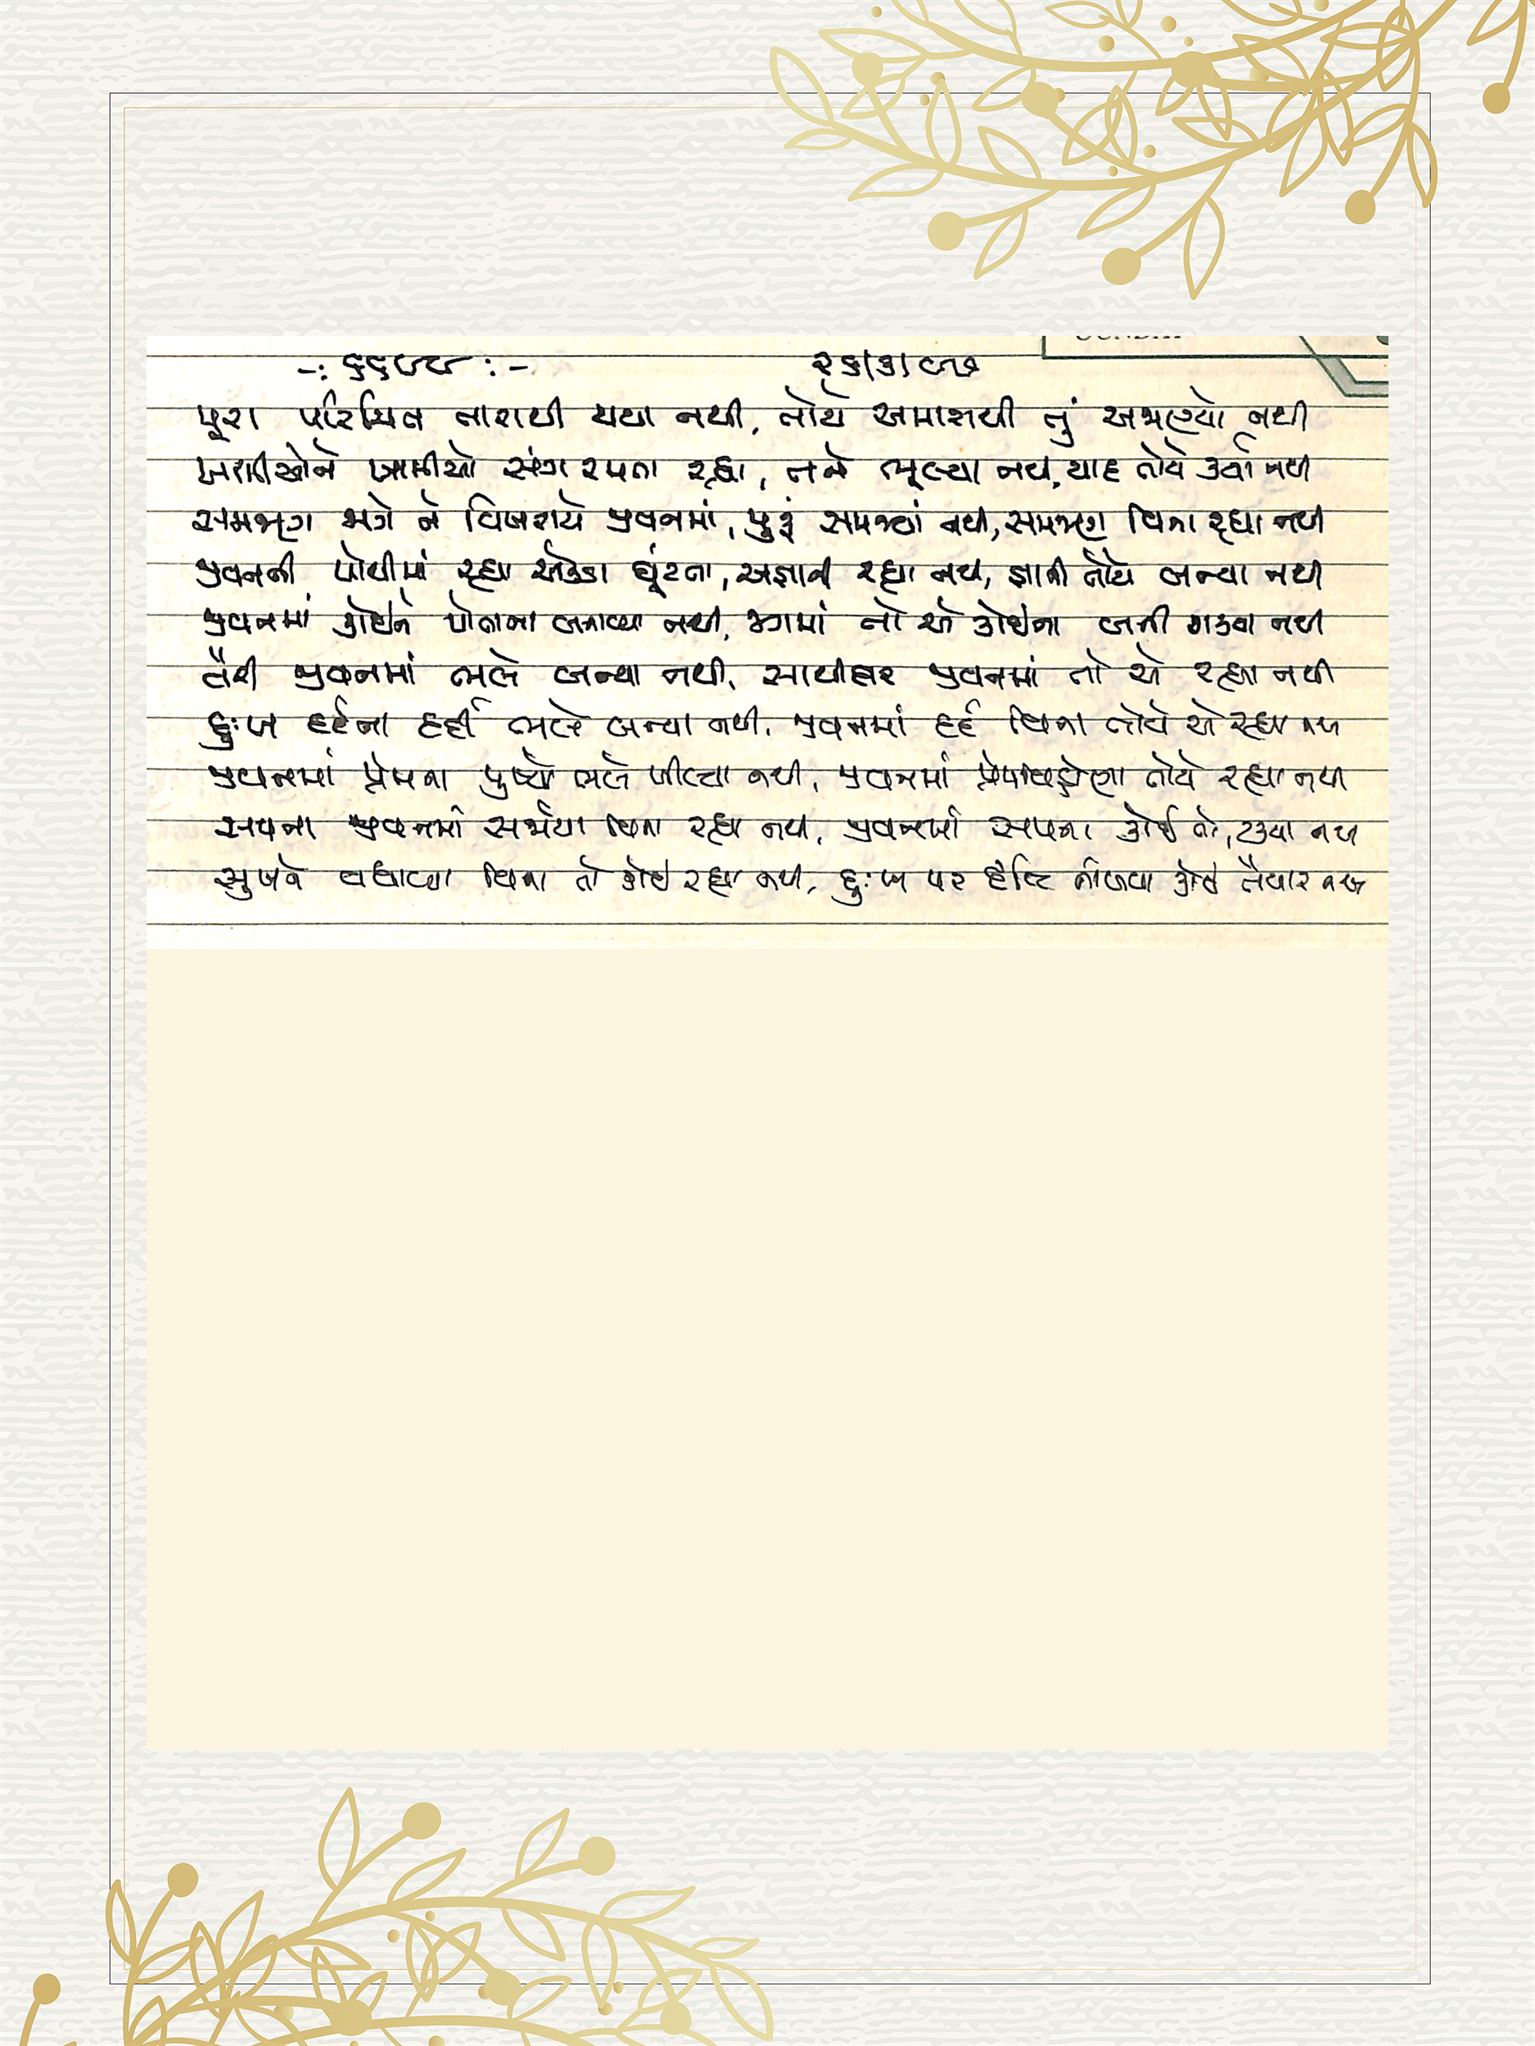 -: ૬૬૭૮ :- ૨૬/૩/૯૭
પૂરા પરિચિત તારાથી થયા નથી, તોયે અમારાથી તું અજાણ્યો નથી
ખાતા રહ્યા, તને ભૂલ્યા નથી, યાદ તોયે કર્યા નથી
સમજણ જાગે ને વિખરાયે જીવનમાં, પૂરું સમજ્યાં નથી, સમજણ વિના રહ્યા નથી
જીવનની પોથીમાં રહ્યા એકડા ઘૂંટતા, અજ્ઞાની રહ્યા નથી, જ્ઞાની તોયે બન્યા નથી
જીવનમાં કોઈને પોતાના બનાવ્યા નથી, જગમાં તો એ કોઈના બની શક્યા નથી
વૈરી જીવનમાં ભલે બન્યા નથી, સાથીદાર જીવનમાં તો એ રહ્યા નથી
દુઃખ દર્દના દર્દી ભલે બન્યા નથી, જીવનમાં દર્દ વિના તોયે એ રહ્યા નથી
જીવનમાં પ્રેમના પુષ્પો ભલે ખીલ્યા નથી, જીવનમાં પ્રેમવિહોણા તોયે રહ્યા નથી
સપના જીવનમાં સર્જાયા વિના રહ્યા નથી, જીવનમાં સપના કોઈ તો, ટક્યા નથી
સુખને વધાવ્યા વિના તો કોઈ રહ્યા નથી, દુઃખ પર દૃષ્ટિ નાંખવા કોઈ તૈયાર નથી